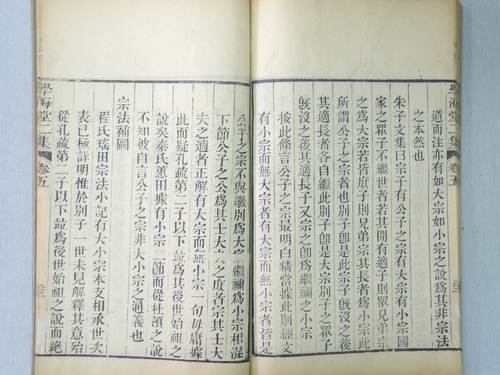 學海堂二集 卷五
道而注亦有如大宗如小宗之說為其非宗法
之本然也
朱子文集曰宗子有公子之宗有大宗有小宗國
家之眾子不繼世者若其閒有適子則眾兄弟宗
之為大宗若皆庶子則兄弟宗其長者為小宗此
所謂公子之宗也別子即是此宗子既沒之後
其適長者各自繼此別子即是大宗別子之眾子
既沒之後其適長子又宗之即為繼禰之小宗
按此條言公子之宗最明白精當據此則經文
有小宗而無大宗有大宗而無小宗者皆是
公子之宗不與繼別為大宗繼禰為小宗相混
下節公子之公為其士大夫之庶者宗其士大
夫之適者正解有大宗而無小宗一句毋庸據
此而疑孔疏第二子以下竝為其後世始祖之
說矣秦氏蕙田據有小宗二節而從杜預之說
不知彼自言公子之宗非大小宗之通義也
宗法補圖
程氏瑞田宗法小記有大小宗本支相承世次
表已極詳明惟於別子一世未見解釋其意殆
從孔疏第二子以下竝為後世始祖之說而絕
學海堂二集 卷五